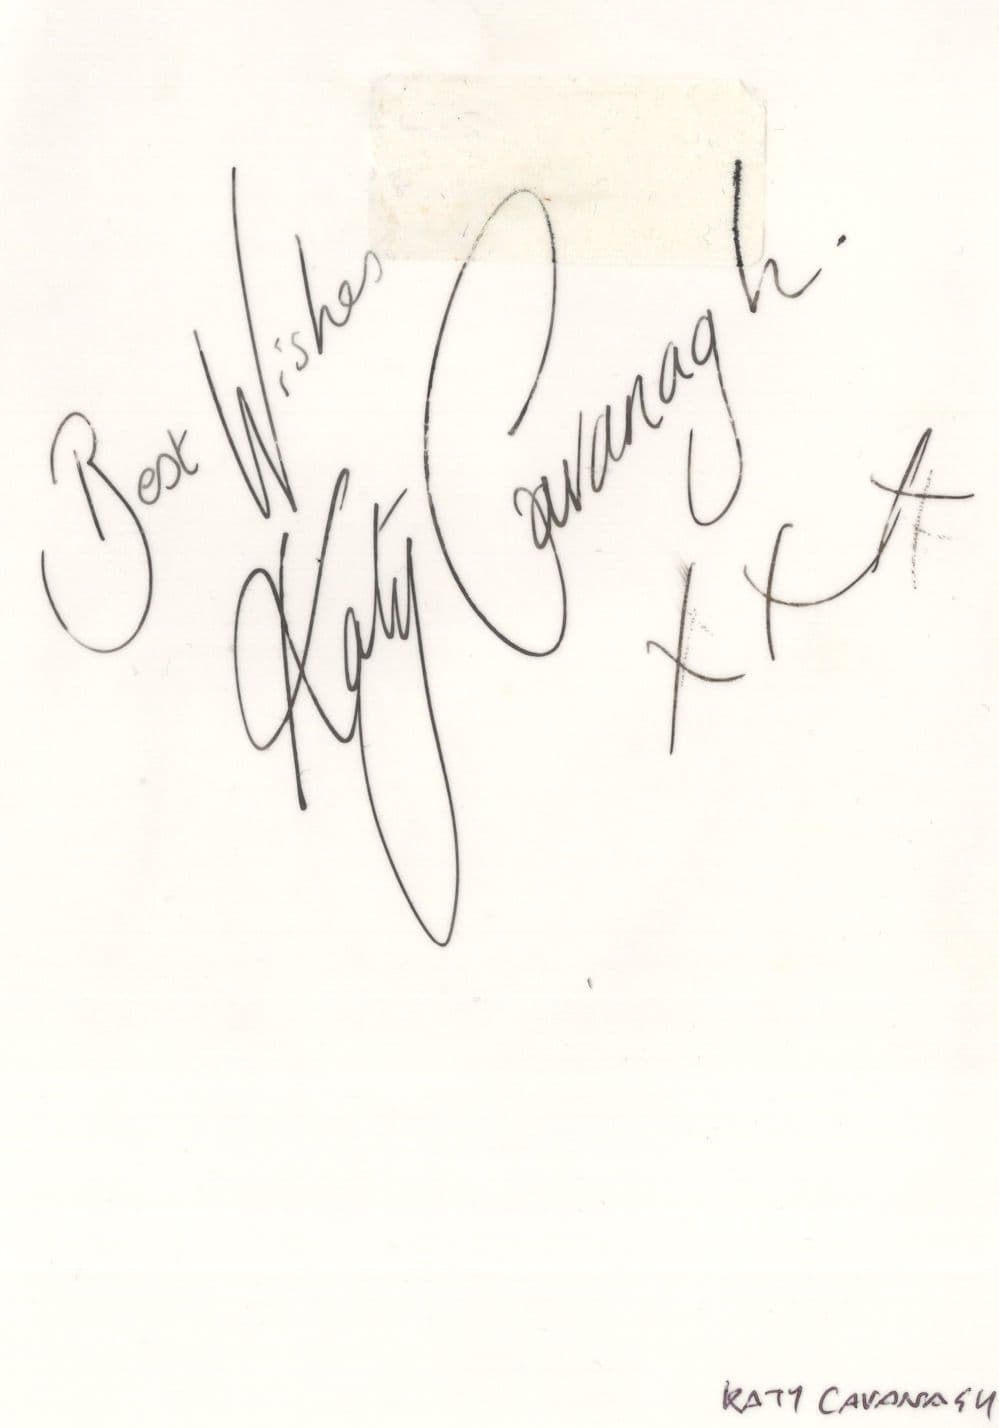 Best Wishes
Katy Cavanagh.
x x x
KATY CAVANAGH